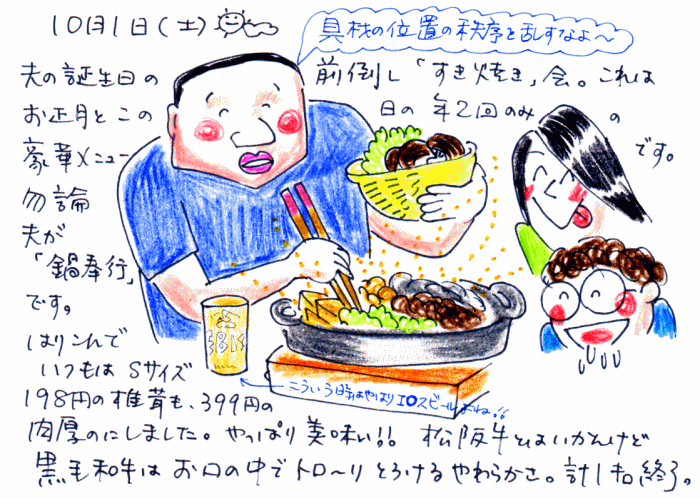 10月1日(土)
具材の位置の秩序を乱すなよ〜
夫の誕生日の前倒し「すき焼き」会。これは
お正月とこの日の年2回のみの
豪華メニューです。
勿論
夫が
「鍋奉行」
です。
はりこんで
いつもは Sサイズ
198円の椎茸も、399円の
こういう時はやはりエビスビールよね!!
肉厚のにしました。やっぱり美味い!! 松阪牛とはいかんけど
黒毛和牛はお口の中でトロ〜リとろけるやわらかさ。計1キロ終了。